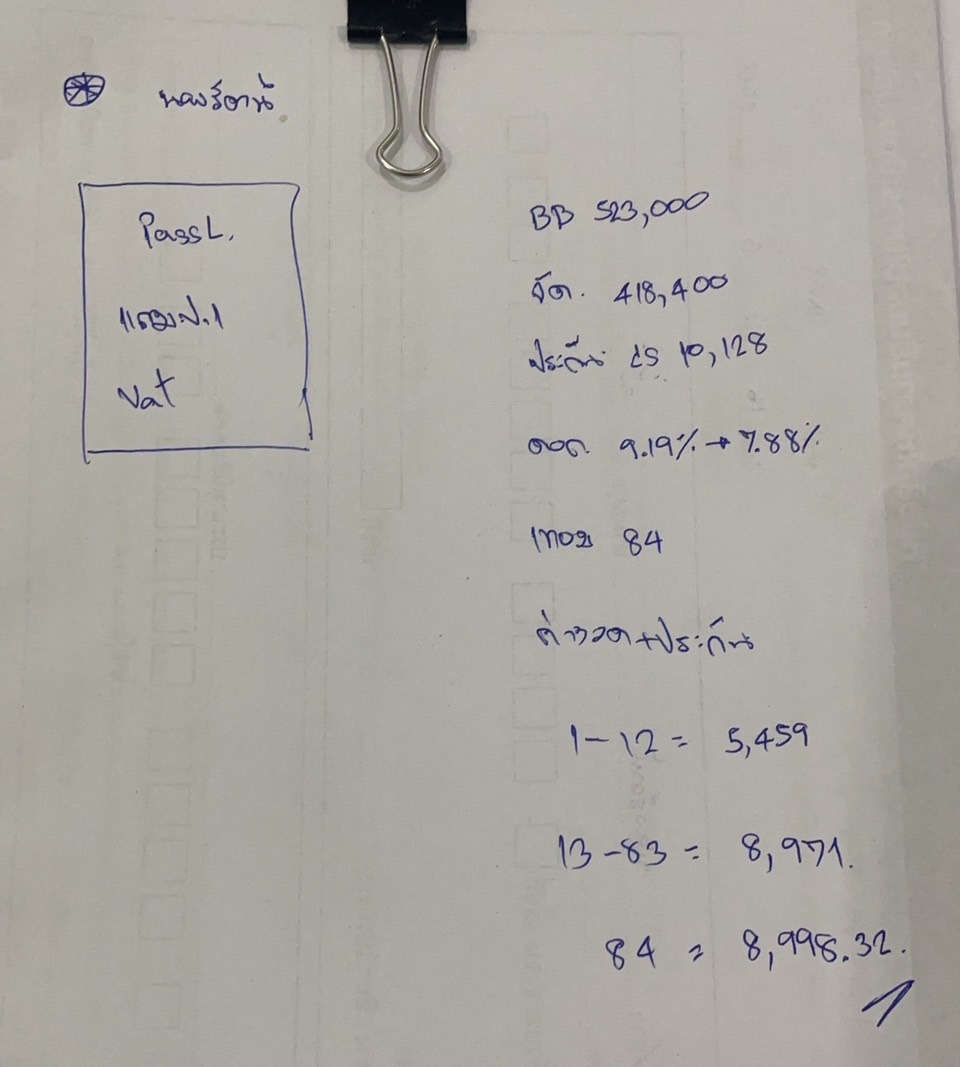 PassL.
แถมป.1
Vat
BB 523,000
จัด. 418,400
ประกัน 10,128
ดอก. 9.19% → 7.88%
84
ค่างวด+ประกัน
1-12 = 5,459
13-83 = 8,971.
84 = 8,998.32.